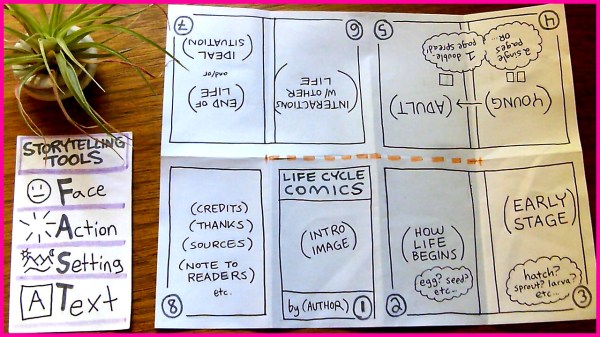 STORYTELLING
TOOLS
Face
Action
Setting
A Text
7
(END OF
LIFE)
and/or
(IDEAL
SITUATION)
6
(INTERACTIONS
W/ OTHER
LIFE)
5
(ADULT)
1 double
page spread!
4
(YOUNG)
2 single
pages
OR...
(CREDITS)
(THANKS)
(SOURCES)
(NOTE TO
READERS)
etc.
8
LIFE CYCLE
COMICS
(INTRO
IMAGE)
by (AUTHOR)
1
(HOW
LIFE
BEGINS)
egg? seed?
etc...
2
(EARLY
STAGE)
hatch?
sprout? larva?
etc...
3